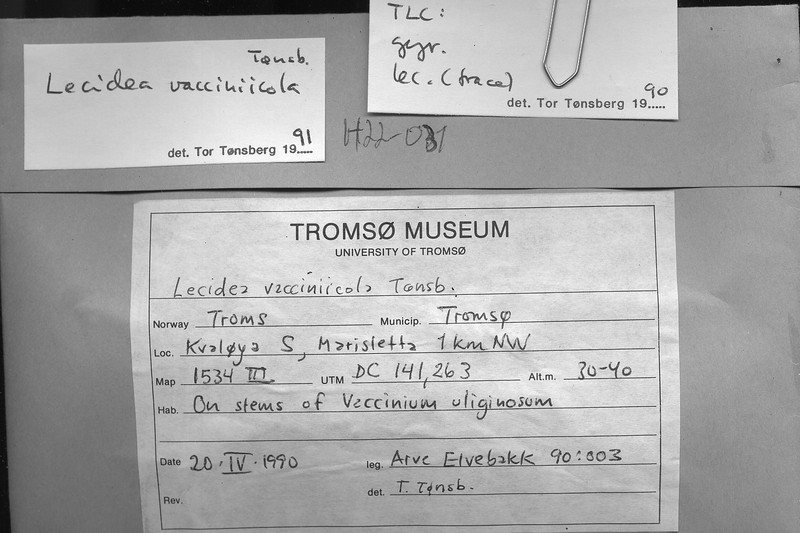 Tønsb.
Lecidea vacciniicola
det. Tor Tønsberg 19.....91
TLC:
gyr.
lec. (trace)
det. Tor Tønsberg 19.....90
H22-031
TROMSØ MUSEUM
UNIVERSITY OF TROMSØ
Lecidea vacciniicola Tønsb.
Norway Troms Municip. Tromsø
Loc. Kvaløya S, Marisletta 1 km NW
Map 1534 III UTM DC 141,263 Alt.m. 30-40
Hab. On stems of Vaccinium uliginosum
Date 20.IV.1990 leg. Arve Elvebakk 90:003
det. T. Tønsb.
Rev.